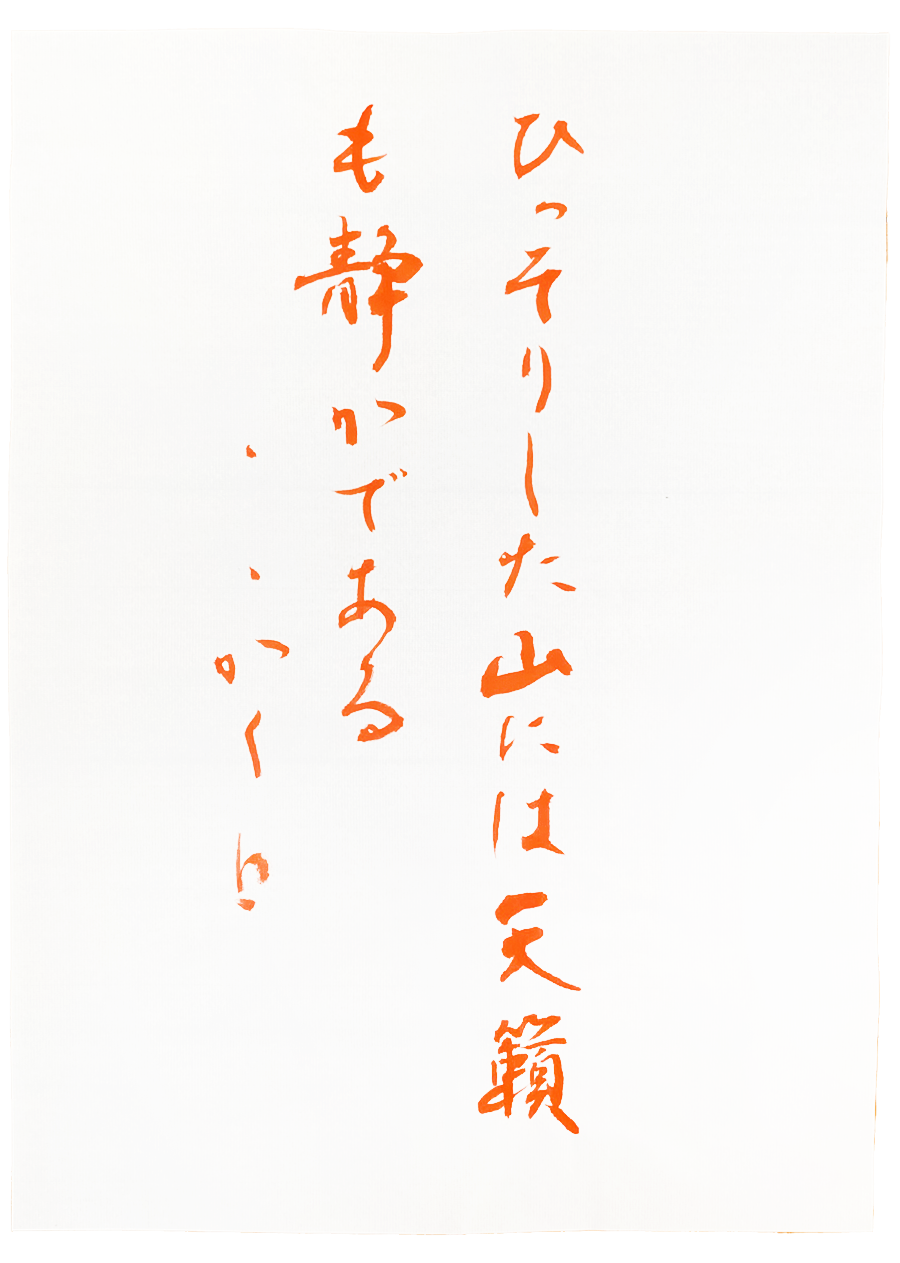 ひっそりした山には天籟
も静かである
かく